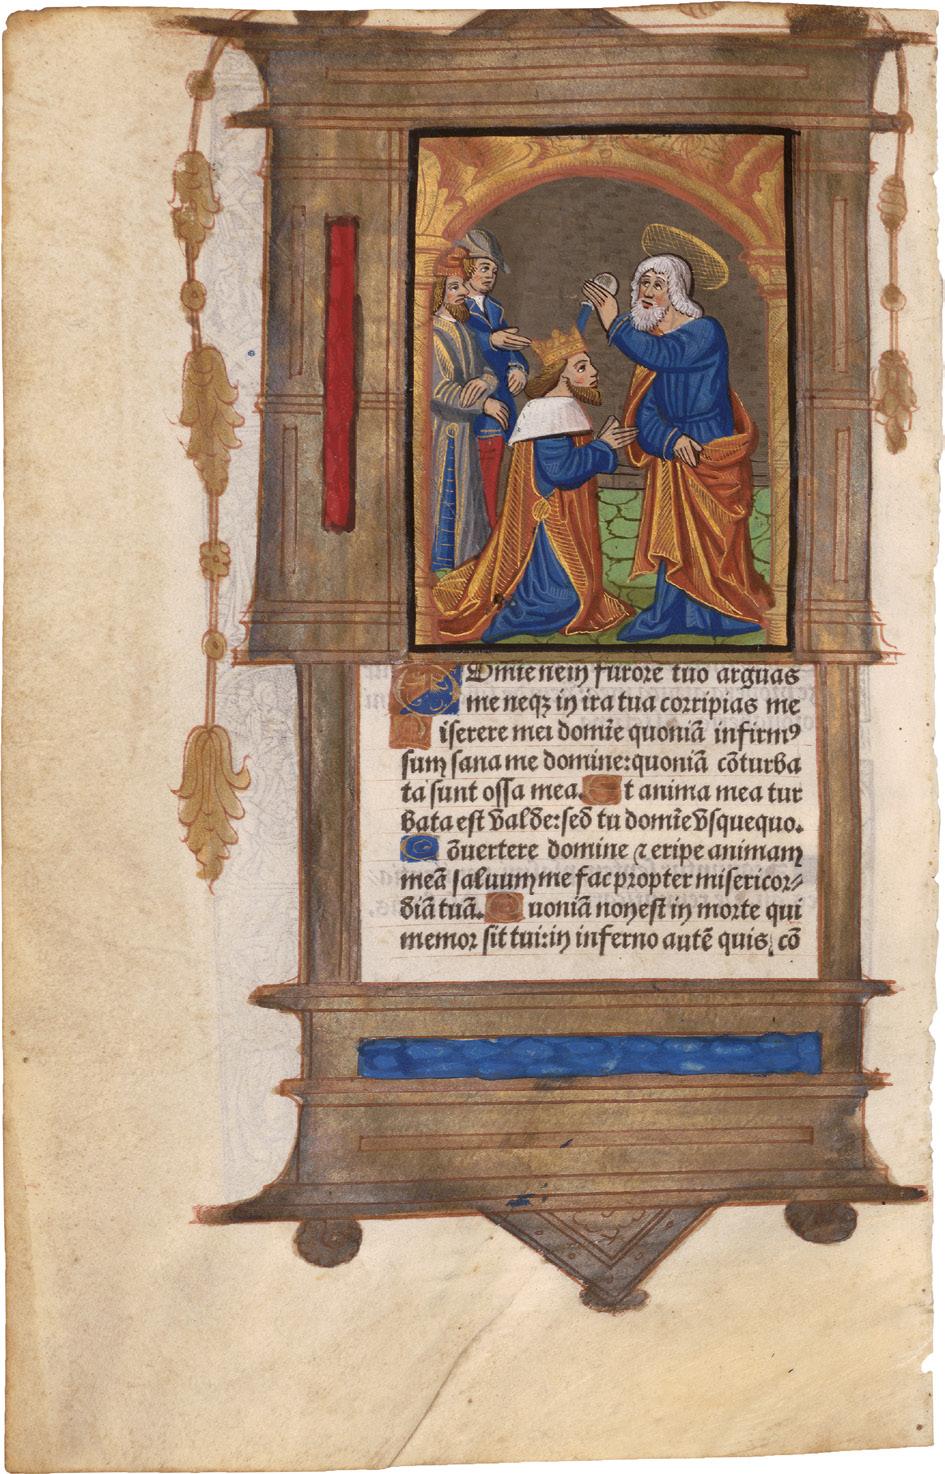 Dm̄ie ne iꝫ furore tuo arguas
me neqꝫ in ira tua corripias me
Miserere mei domīe quoniā infirmꝰ
sum sana me domine: quoniā cōturba
ta sunt ossa mea. Et anima mea tur
bata est valde: sed tu domīe vsquequo.
Cōuertere domine ⁊ eripe animam
meā saluum me fac propter misericor⸗
diā tuā. Quoniā non est in morte qui
memor sit tui: in inferno autē quis cō